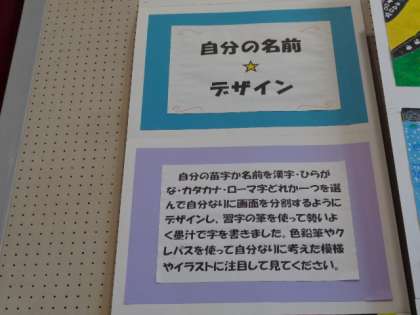 自分の名前
☆
デザイン
自分の苗字か名前を漢字・ひらが
な・カタカナ・ローマ字どれか一つを選
んで自分なりに画面を分割するように
デザインし、習字の筆を使って勢いよ
く墨汁で字を書きました。色鉛筆やク
レパスを使って自分なりに考えた模様
やイラストに注目して見てください。